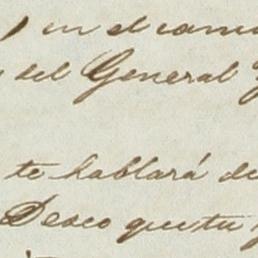 ) en el cami
del General
te hablará de
Deseo que tu